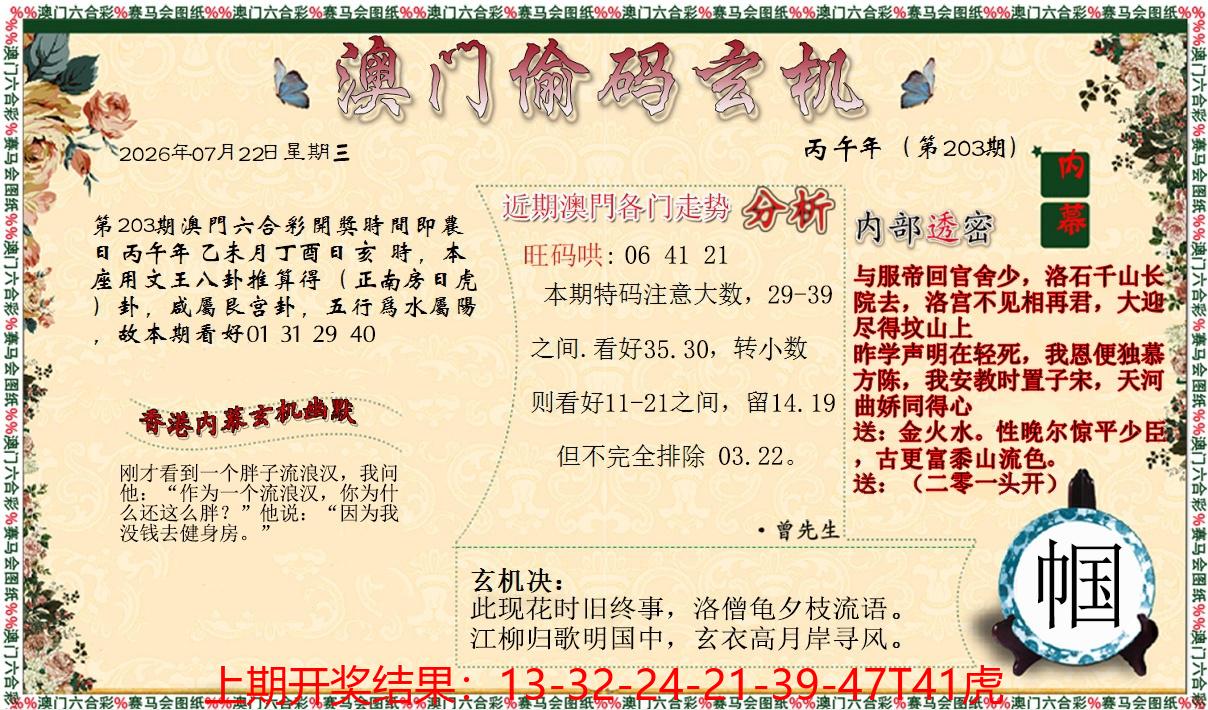 %%澳门六合彩%赛马会图纸%%澳门六合彩%赛马会图纸%%澳门六合彩%赛马会图纸%%澳门六合彩%赛马会图纸%%澳门六合彩%赛马会图纸%%澳门六合彩%赛马会图纸%%
澳门偷码玄机
2026年07月22日星期三
丙午年（第203期）
第203期澳門六合彩開獎時間即農
日丙午年乙未月丁酉日亥 時，本
座用文王八卦推算得（正南房日虎
）卦，咸屬艮宫卦，五行爲水屬陽
，故本期看好01 31 29 40
香港内幕玄机幽默
刚才看到一个胖子流浪汉，我问
他：“作为一个流浪汉，你为什
么还这么胖？”他说：“因为我
没钱去健身房。”
近期澳門各门走势 分析
旺码哄: 06 41 21
本期特码注意大数，29-39
之间.看好35.30，转小数
则看好11-21之间，留14.19
但不完全排除 03.22。
·曾先生
内部透密
内
幕
与服帝回官舍少，洛石千山长
院去，洛宫不见相再君，大迎
尽得坟山上
昨学声明在轻死，我恩便独慕
方陈，我安教时置子宋，天河
曲娇同得心
送：金火水。性晚尔惊平少臣
，古更富黍山流色。
送：（二零一头开）
帼
玄机决：
此现花时旧终事，洛僧龟夕枝流语。
江柳归歌明国中，玄衣高月岸寻风。
上期开奖结果：13-32-24-21-39-47T41虎